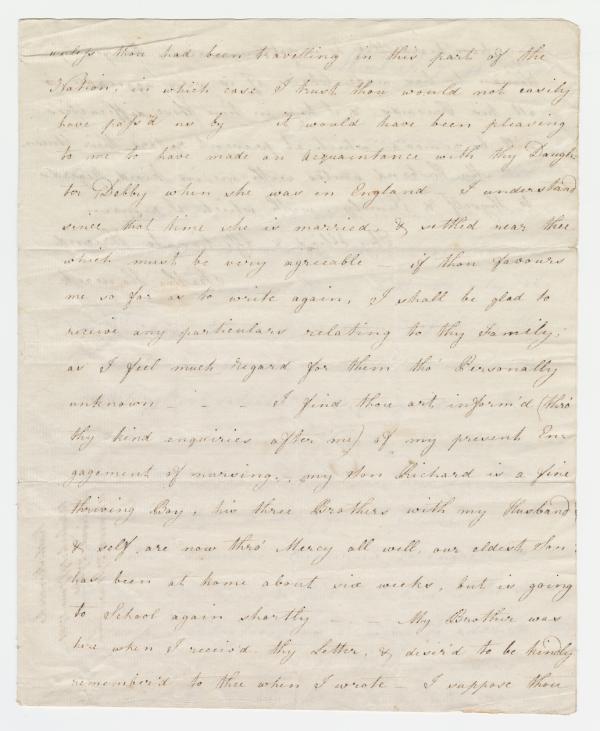 unless thou had been travelling in this part of the
Nation, in which case I trust thou would not easily
have pass'd us by it would have been pleasing
to me to have made an acquaintance with thy Daugh
ter Debby when she was in England - I understand
since that time she is married, & settled near thee
which must be very agreeable - if thou favours
me so far as to write again, I shall be glad to
receive any particulars relating to thy Family;
as I feel much regard for them tho' Personally
unknown - - - I find thou art inform'd (thro'
thy kind enquiries after me) of my present En-
gagement of nursing, my Son Richard is a fine
thriving Boy, his three Brothers with my Husband
& self are now thro' Mercy all well, our oldest Son
has been at home about six weeks, but is going
to School again shortly - - My Brother was
here when I receiv'd thy Letter, & desir'd to be kindly
remember'd to thee when I wrote - I suppose thou